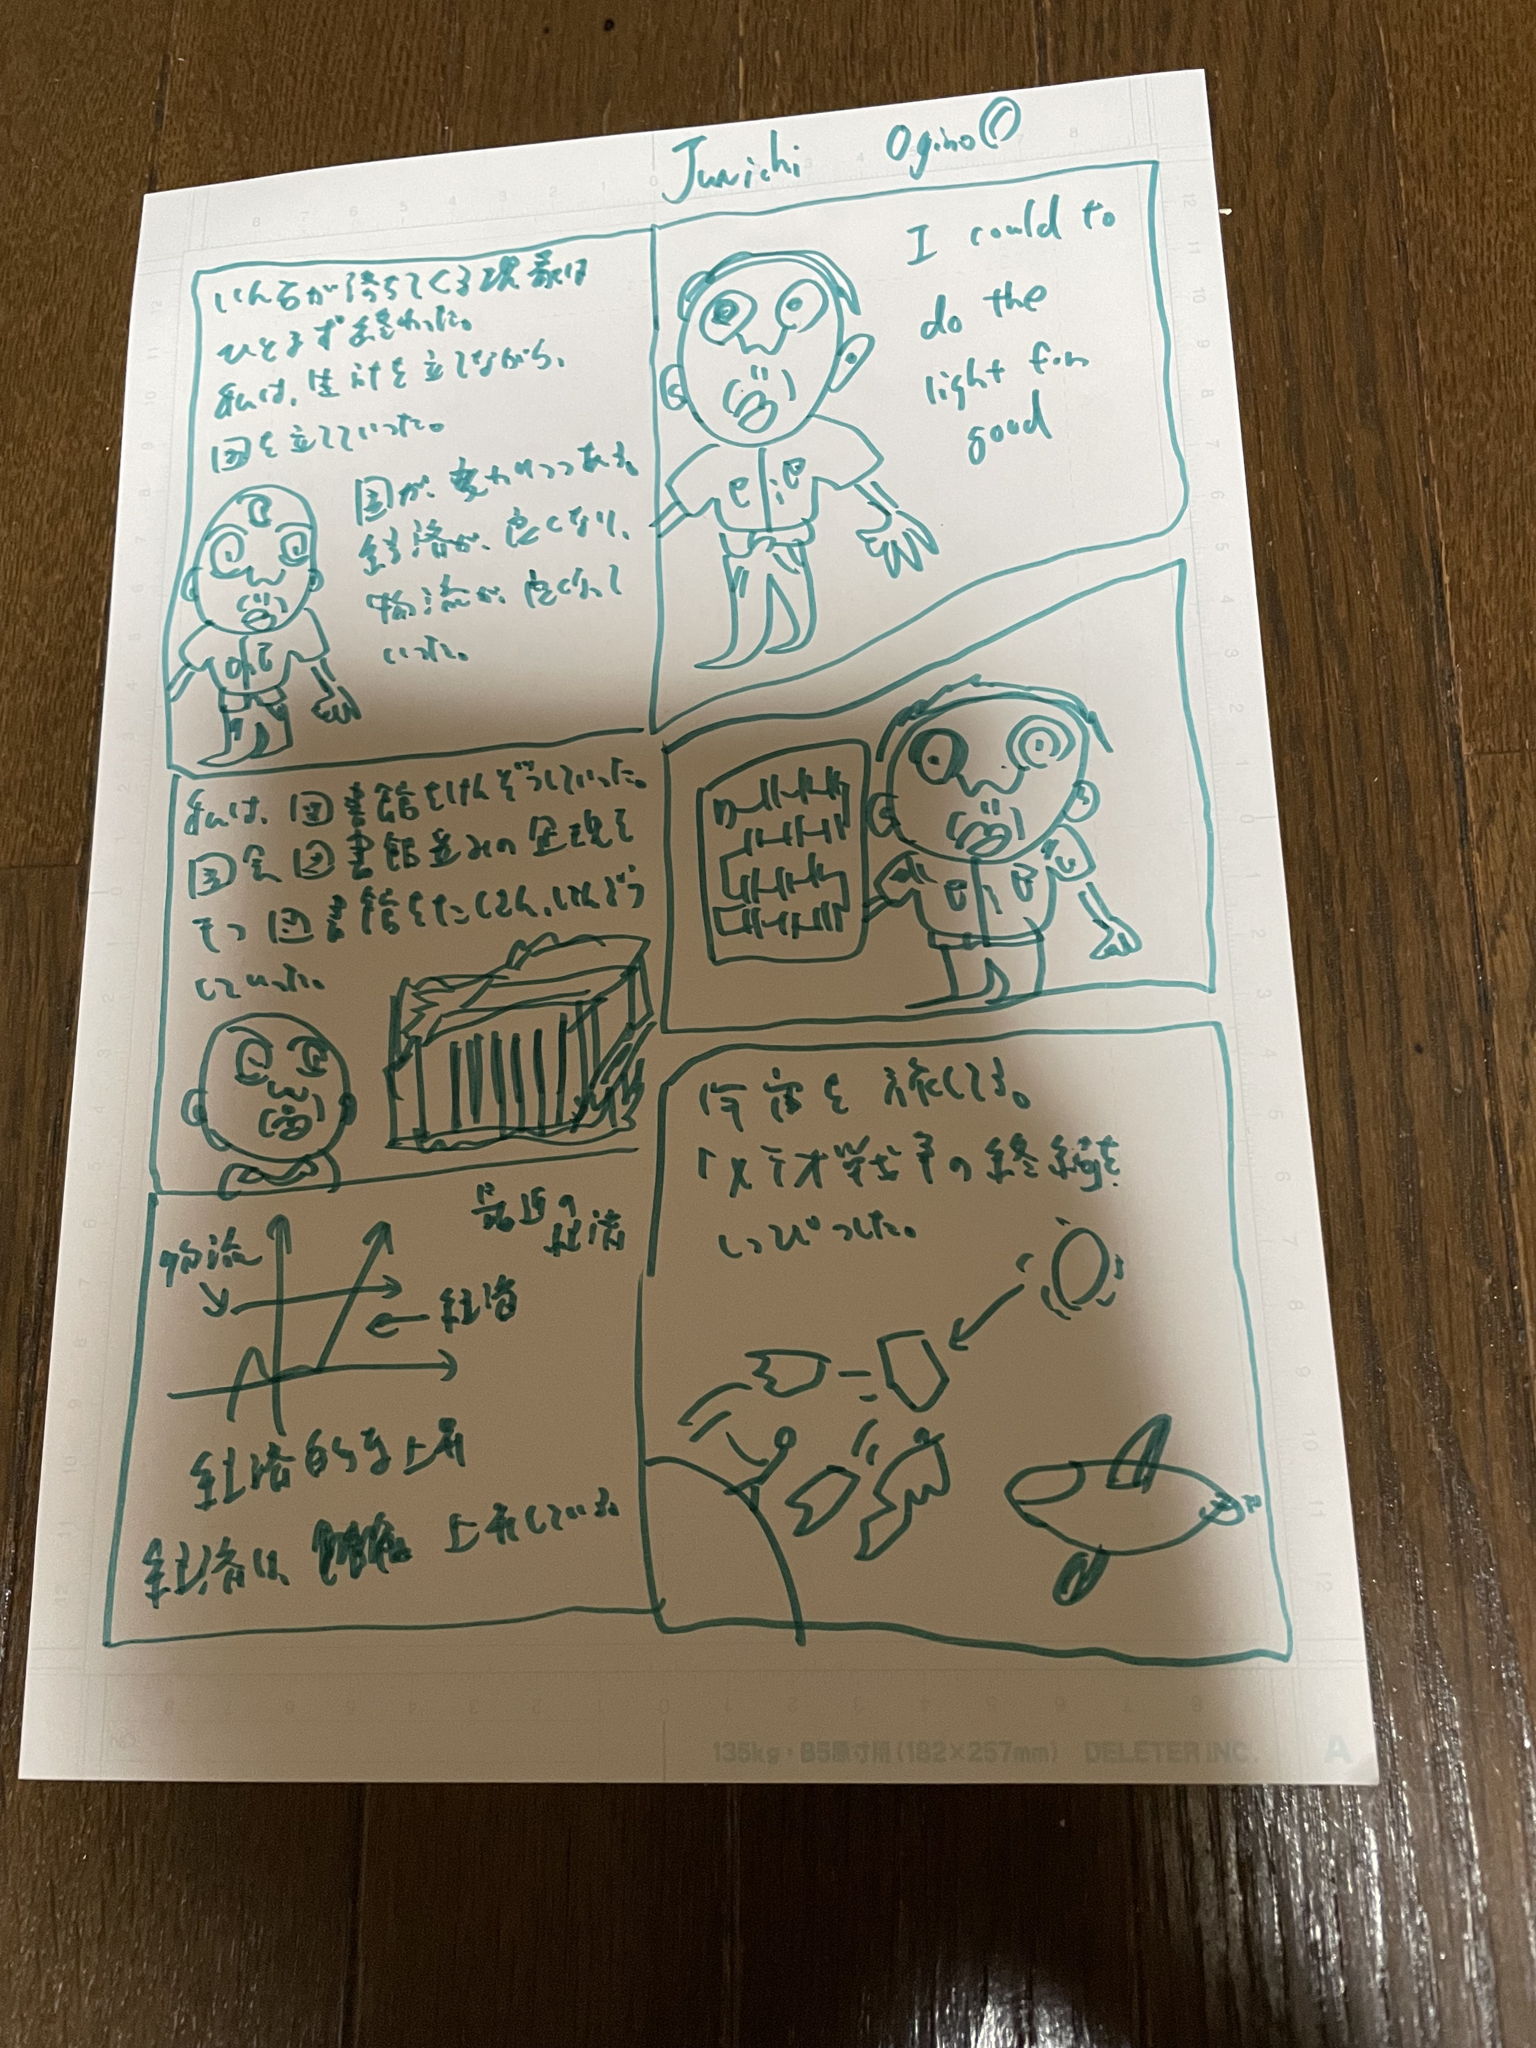 Junichi Ogino
I could to
do the
light for
good
宇宙を旅してる。
「メテオ戦争の終結を
しっぴつした。
いん石が落ちてくる現象は
ひとまず終わった。
私は、生計を立てながら、
国を立てていった。
国が、変わりつつある。
経済が、良くなり、
物流が、良くなって
いった。
私は、図書館をけんぞうしていった。
国会図書館並みの
もつ図書館をたくさん、けんぞう
していった。
最近の
経済
物流
経済
経済的な上昇
経済は、上昇している。
135kg・B5原寸用(182×257mm) DELETER INC. A